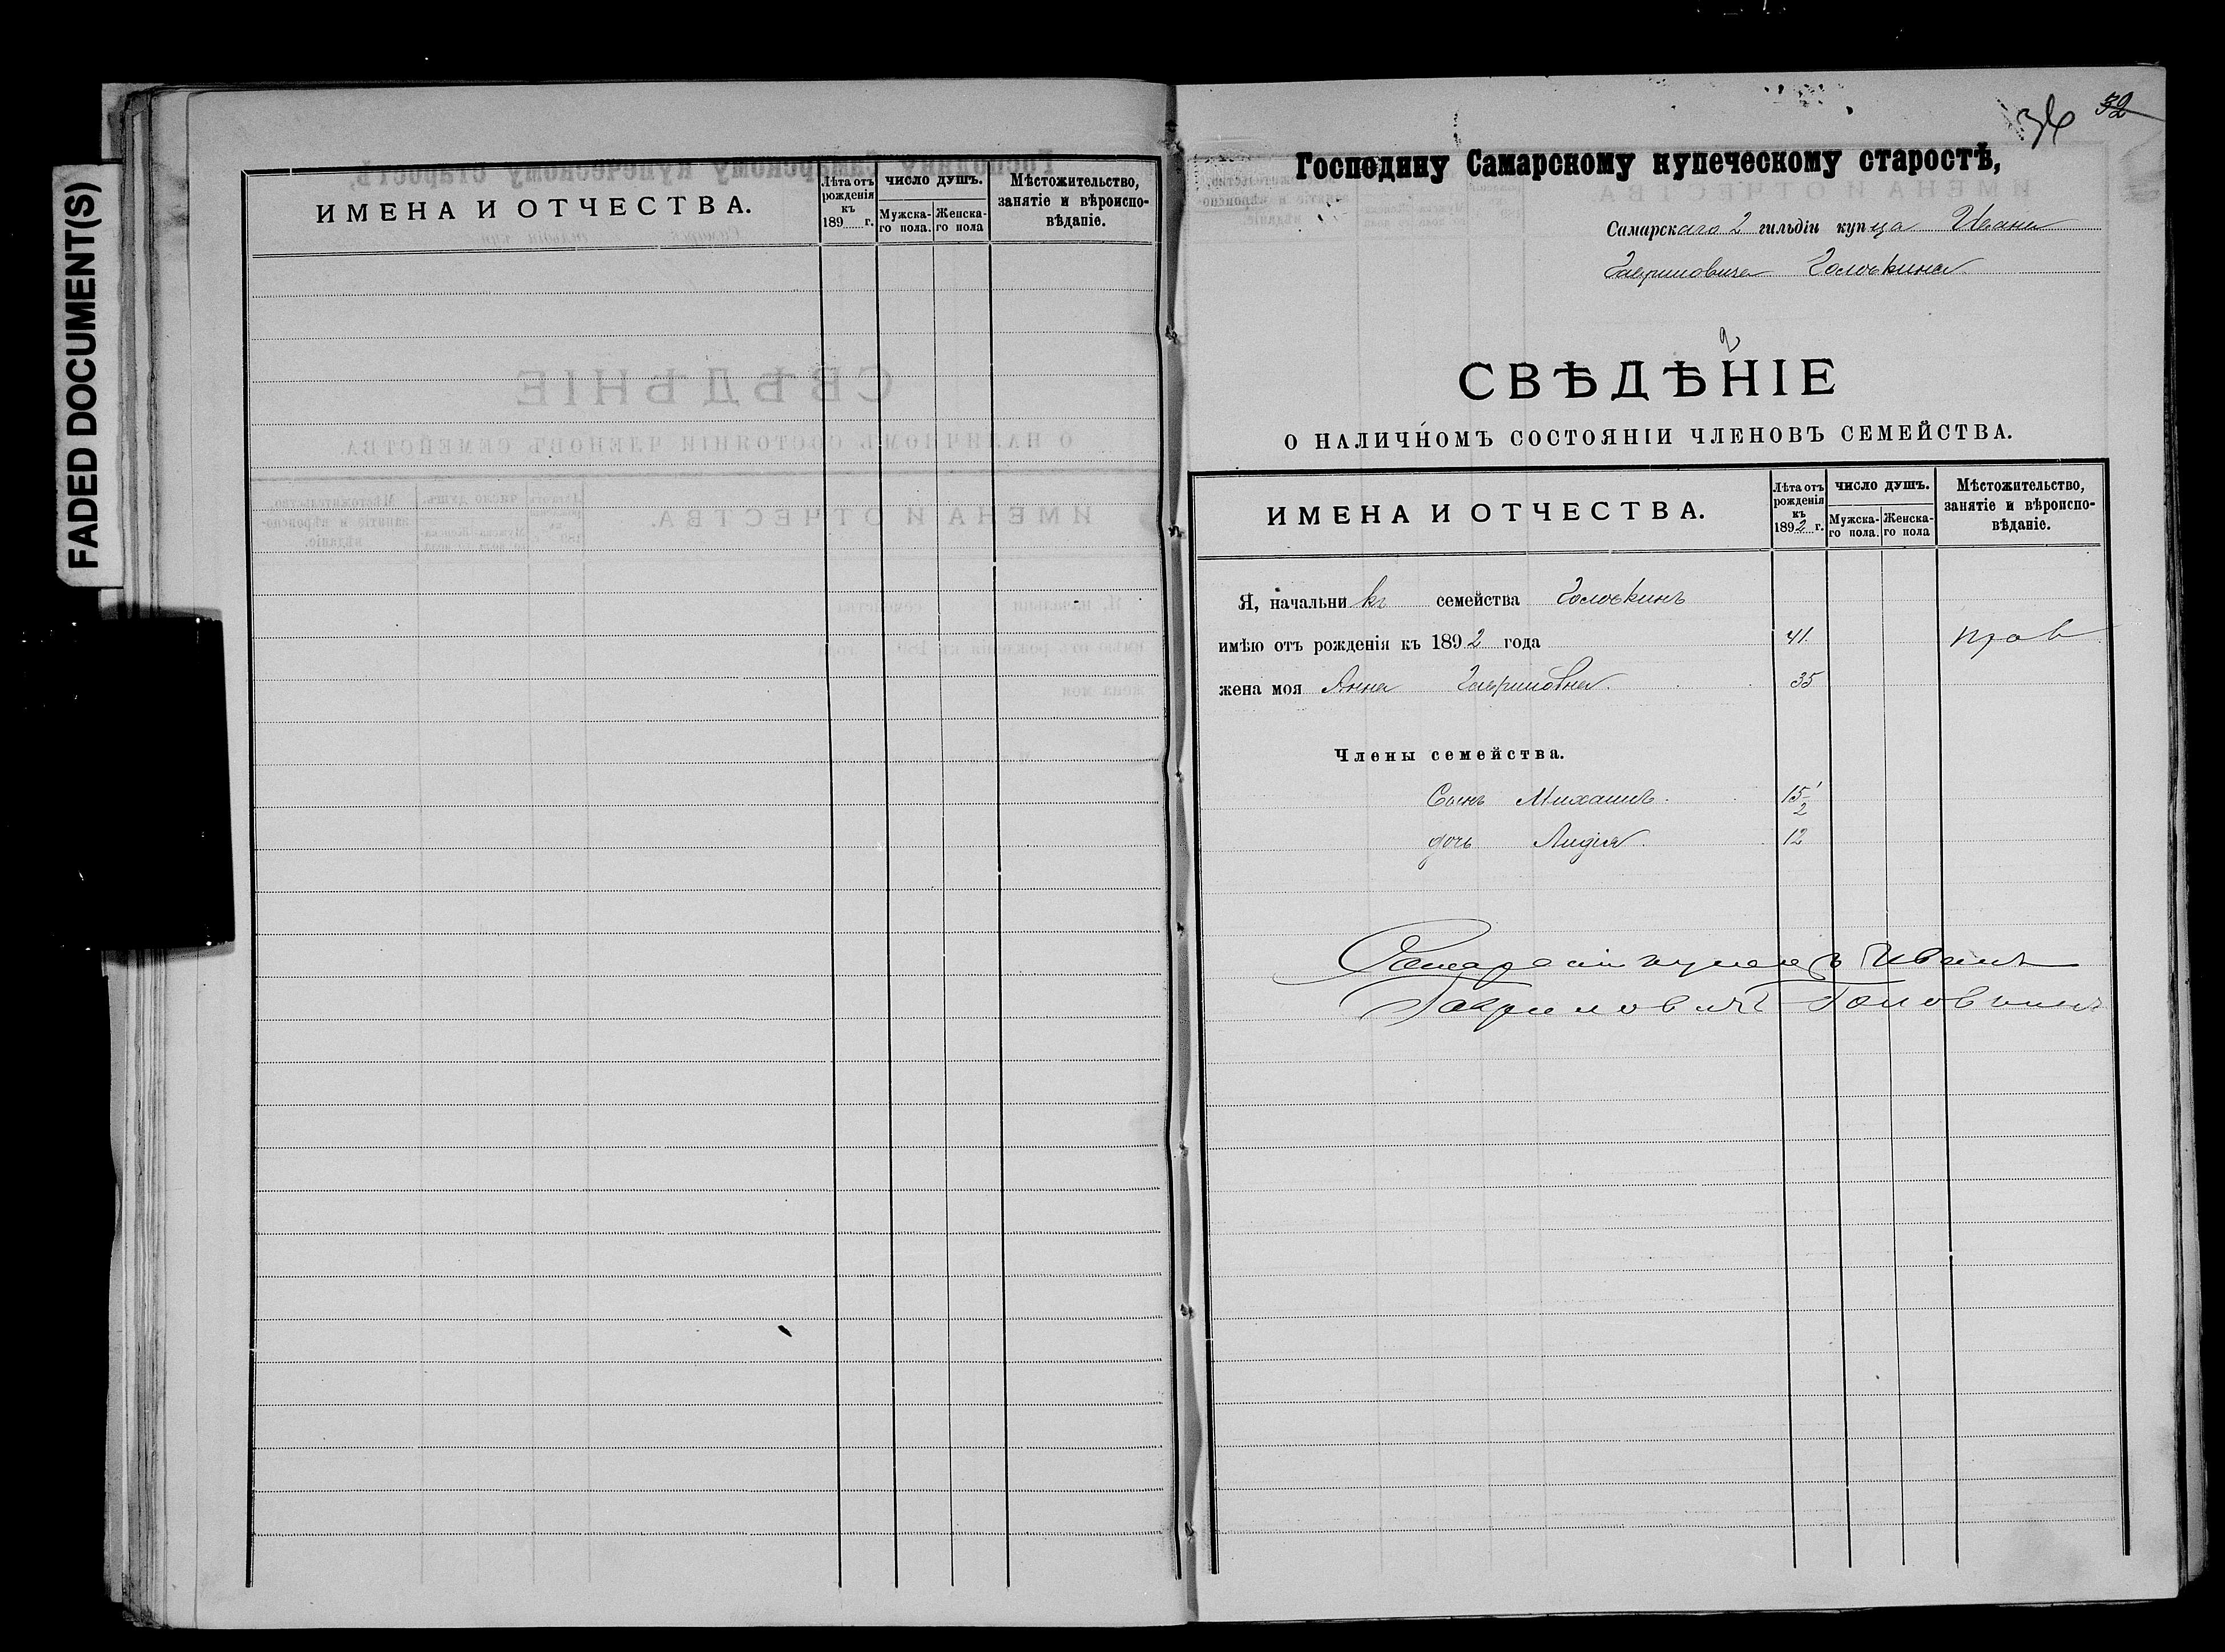 FADED DOCUMENT(S)
ИМЕНА И ОТЧЕСТВА.
Лѣта отъ рожденія къ 189 г.
ЧИСЛО ДУШЪ.
Мужска-го пола.
Женска-го пола
Мѣстожительство, занятіе и вѣроиспо-вѣданіе.
32
Господину Самарскому купеческому старостѣ,
Самарскаго 2 гильдіи купца Ивана
Гавриловича Головкина
СВѢДѢНІЕ
О НАЛИЧНОМЪ СОСТОЯНІИ ЧЛЕНОВЪ СЕМЕЙСТВА.
ИМЕНА И ОТЧЕСТВА.
Лѣта отъ рожденія къ 1892 г.
ЧИСЛО ДУШЪ.
Мужска-го пола.
Женска-го пола
Мѣстожительство, занятіе и вѣроиспо-вѣданіе.
Я, начальникъ семейства Головкинъ
имѣю отъ рожденія къ 1892 года 41. прав
жена моя Анна Гавриловна. 35
Члены семейства.
Сынъ Михаилъ. 15 1/2
дочь Лидія. 12
Самарскій купецъ Иванъ
Гавриловичъ Головкинъ